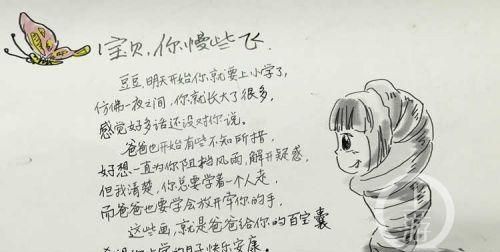 宝贝,你慢些飞.
豆豆,明天开始你就要上小学了,
仿佛一夜之间,你就长大了很多,
感觉好多话还没对你说。
爸爸也开始有些不知所措,
好想一直为你阻挡风雨,解开疑惑,
但我清楚,你总要学着一个人走,
而爸爸也要学会放开牵你的手,
这些画,就是爸爸给你的百宝囊